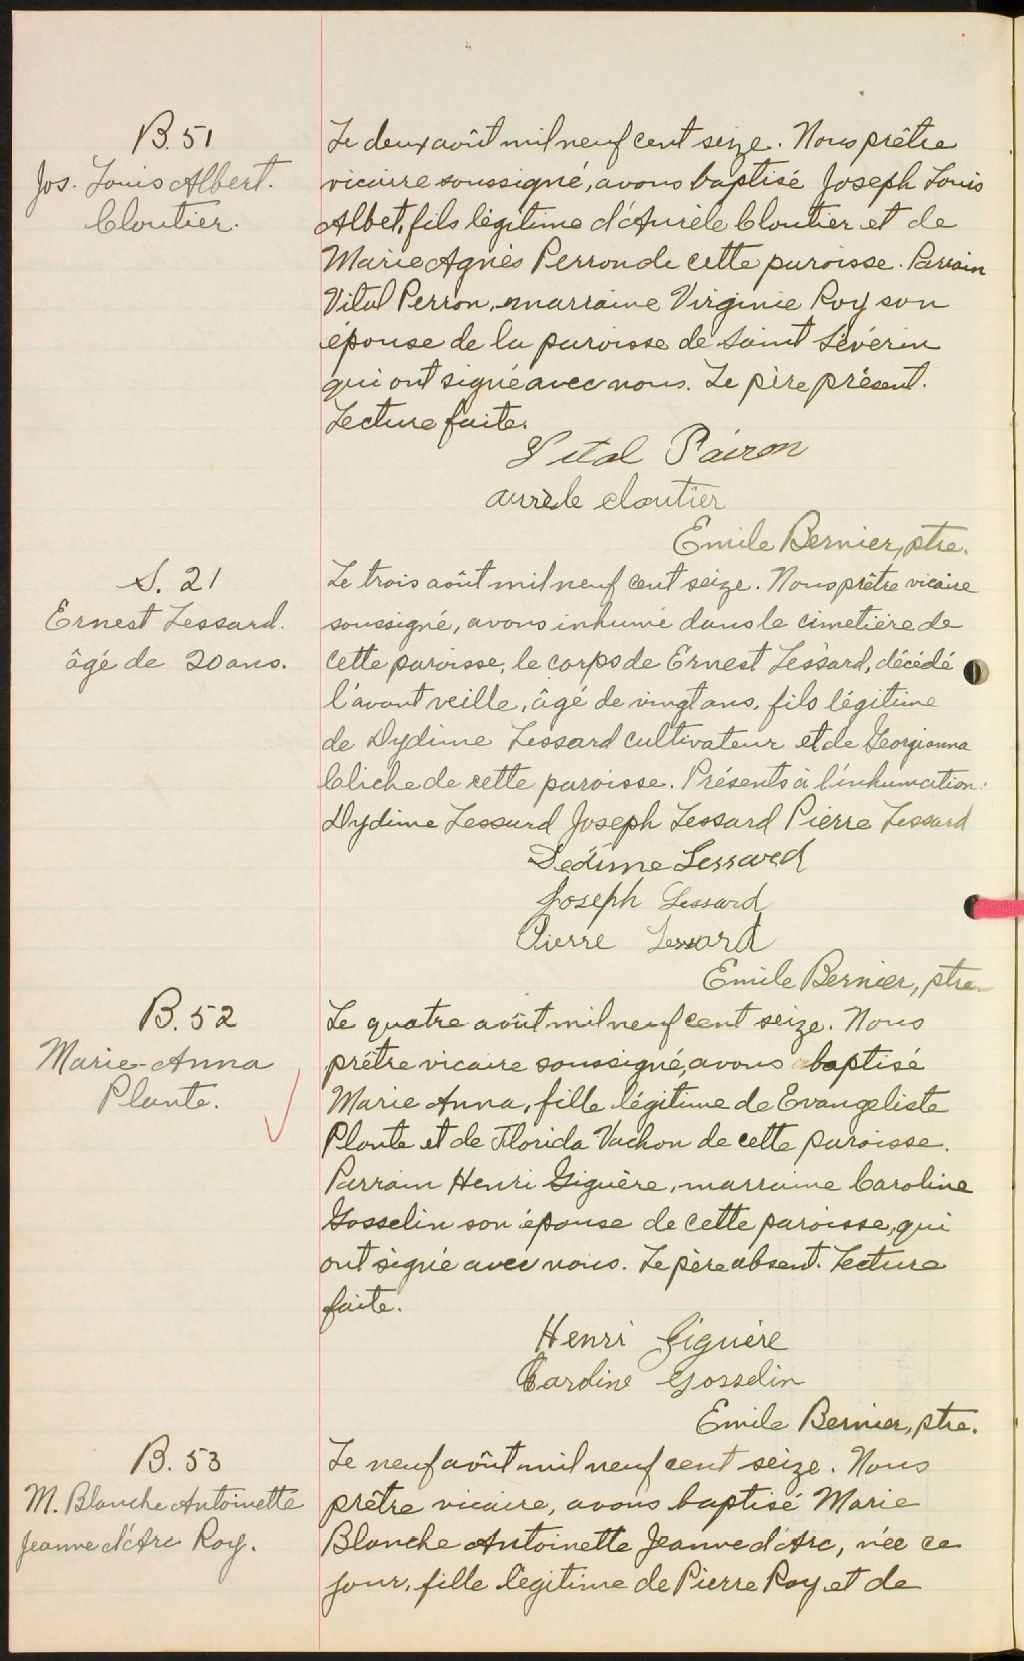 B. 51
Jos. Louis Albert.
Cloutier.
Le deux août mil neuf cent seize. Nous prêtre
vicaire soussigné, avons baptisé Joseph Louis
Albet, fils légitime d'Aurèle Cloutier et de
Marie Agnès Perron de cette paroisse. Parrain
Vital Perron, marraine Virginie Roy son
épouse de la paroisse de Saint Séverin
qui ont signé avec nous. Le père présent.
Lecture faite.
Vital Pairon
aurèle cloutier
Emile Bernier, ptre.
S. 21
Ernest Lessard.
âgé de 20 ans.
Le trois août mil neuf cent seize. Nous prêtre vicaire
soussigné, avons inhumé dans le cimetière de
cette paroisse, le corps de Ernest Lessard, décédé
l'avant veille, âgé de vingt ans, fils légitime
de Dydime Lessard cultivateur et de Georgianna
Cliche de cette paroisse. Présents à l'inhumation:
Dydime Lessard Joseph Lessard Pierre Lessard
Dedime Lessared
Joseph Lessard
Pierre Lessard
Emile Bernier, ptre
B. 52
Marie-Anna
Plante.
Le quatre août mil neuf cent seize. Nous
prêtre vicaire soussigné, avons baptisé
Marie Anna, fille légitime de Evangeliste
Plante et de Florida Vachon de cette paroisse.
Parrain Henri Giguère, marraine Caroline
Gosselin son épouse de cette paroisse, qui
ont signé avec nous. Le père absent. Lecture
faite.
Henri Giguère
Caroline Gosselin
Emile Bernier, ptre.
B. 53
M. Blanche Antoinette
Jeanne d'Arc Roy.
Le neuf août mil neuf cent seize. Nous
prêtre vicaire, avons baptisé Marie
Blanche Antoinette Jeanne d'Arc, née ce
jour, fille légitime de Pierre Roy et de